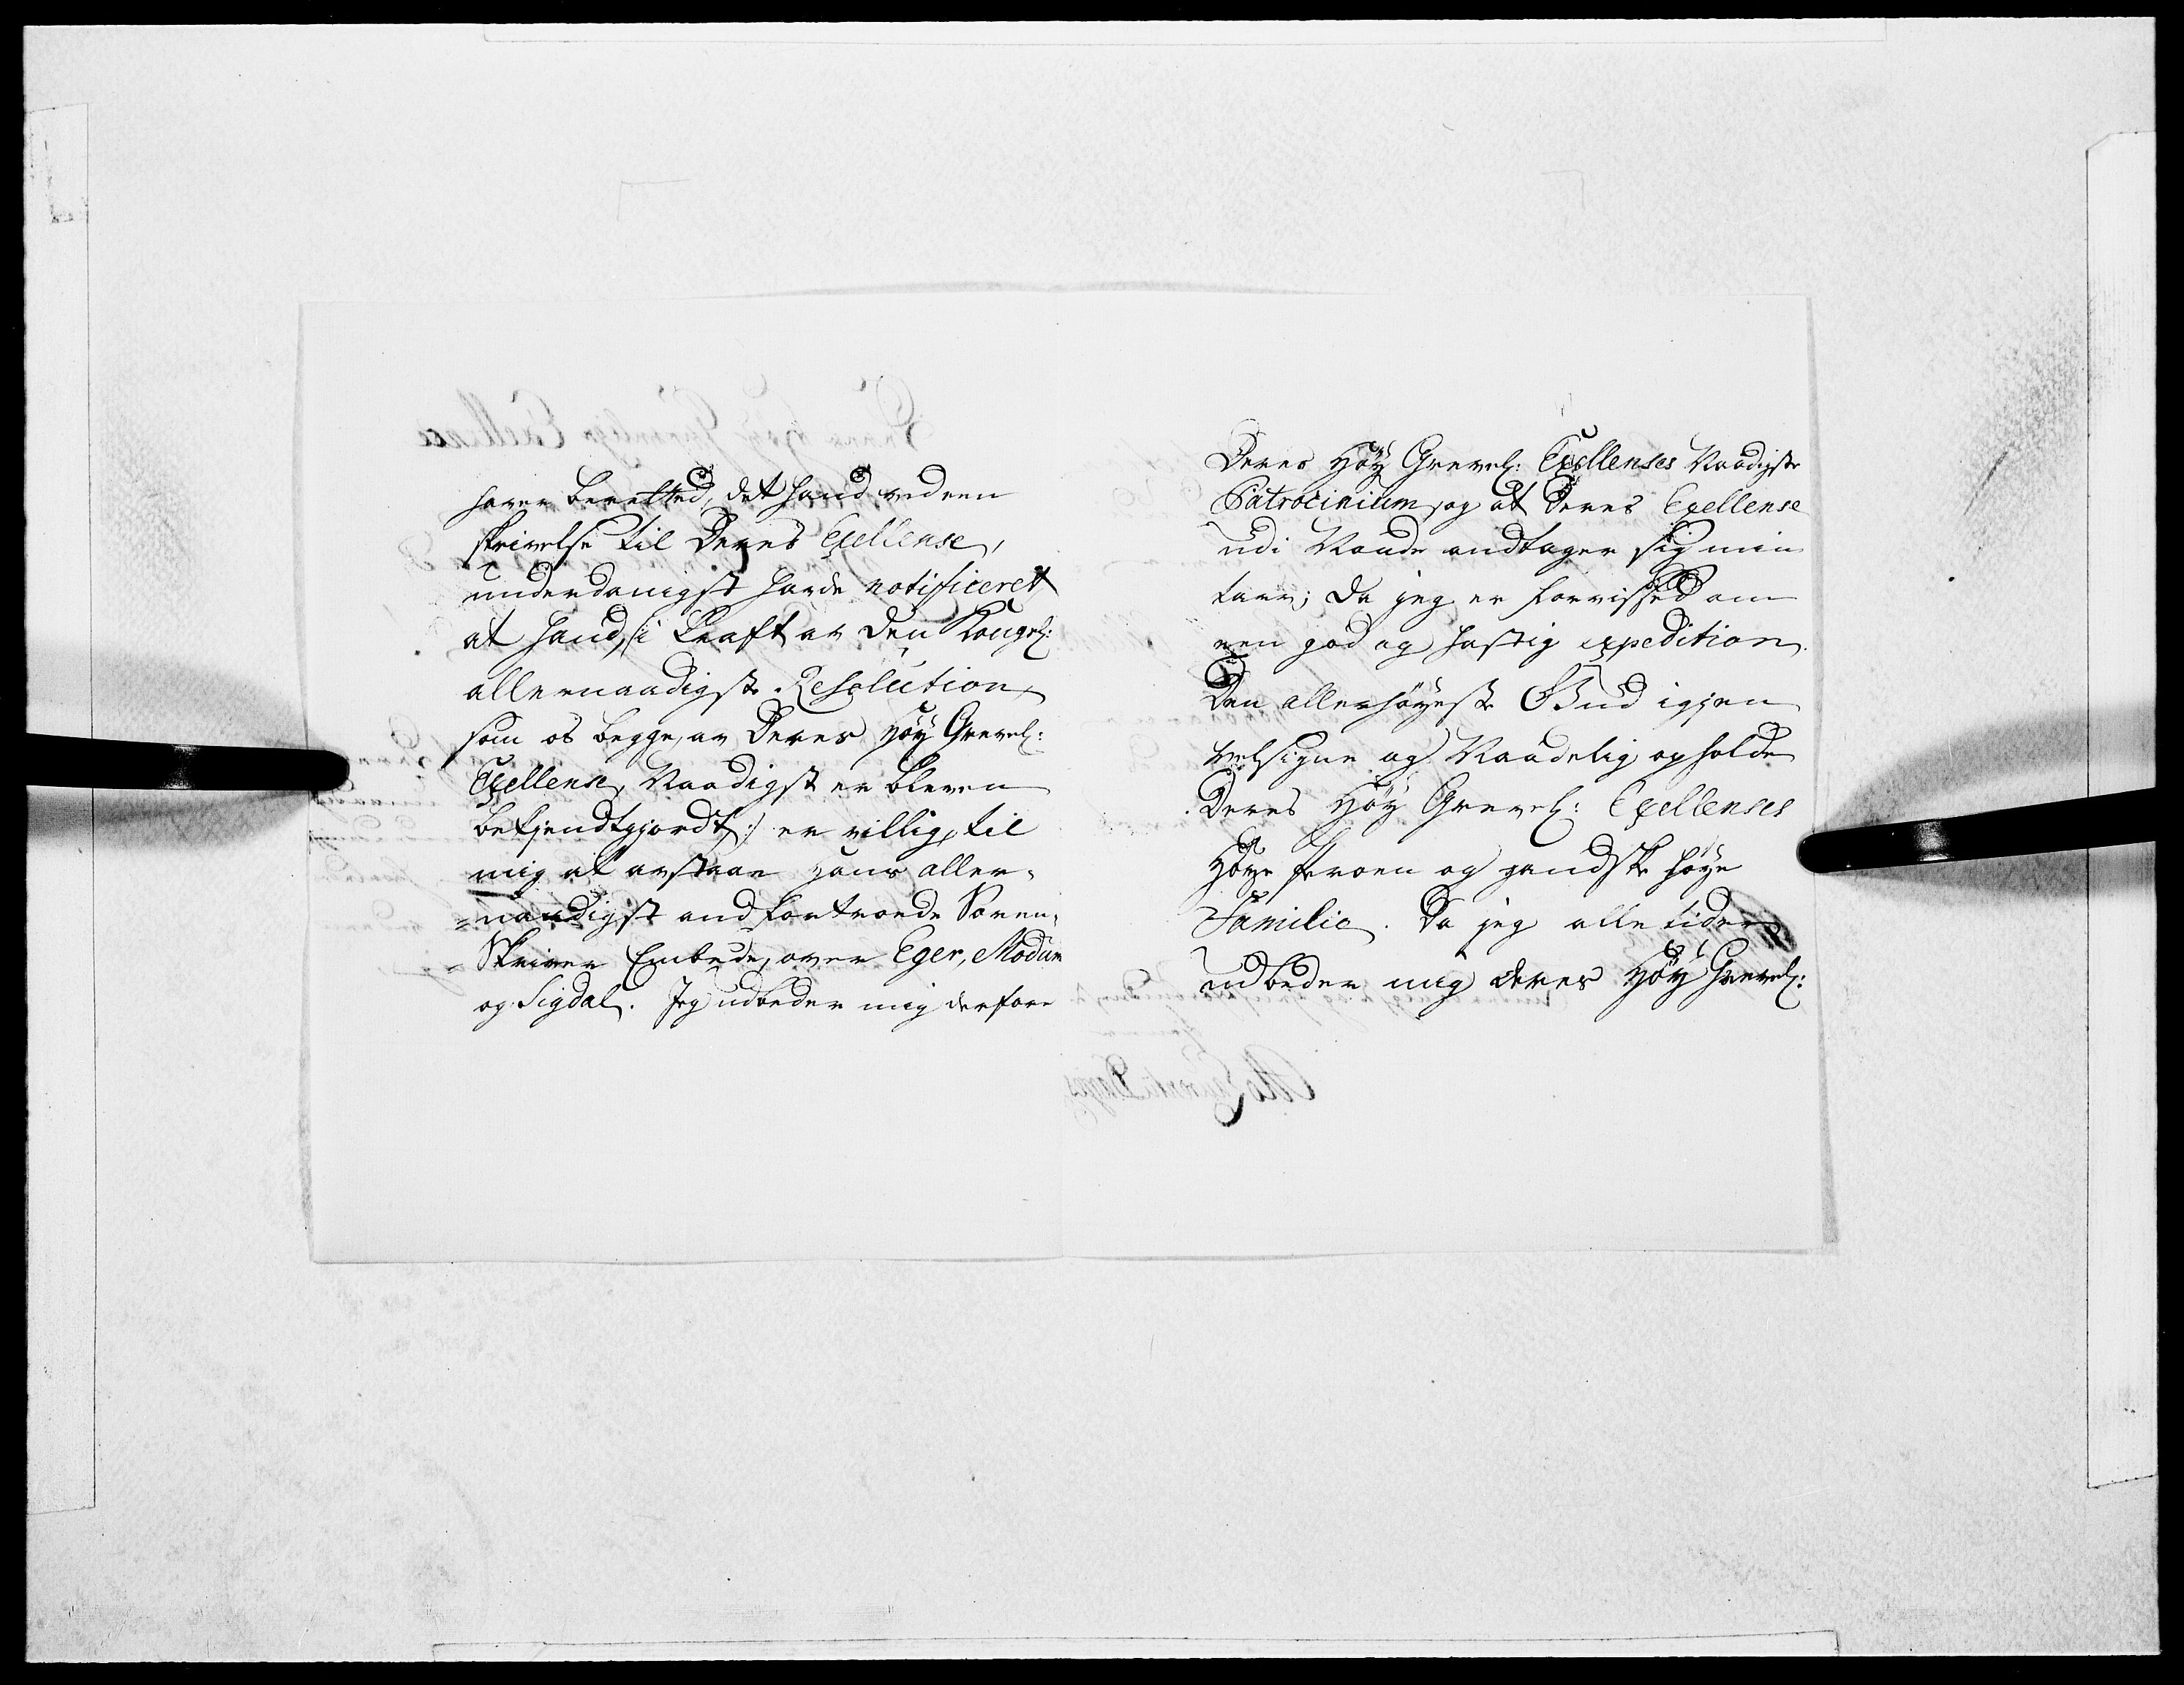 haver berætted, det hand ved een
skrivelse til Deres Exellense,
underdanigst havde notificeret
at hand, |: i kraft av den Kongel:
allernaadigste Resolution,
som os begge, av Deres Høy Grevel:
Exellense, Naadigst er bleven
bekjendtgjordt, :| er villig, til
mig at avstaae hans aller-
=naadigst andfortroede Soren-
=Skriver Embede, over Eger, Modum
og Sigdal. Jeg udbeder mig derfore
Deres Høy Grevel: Exellenses Naadigste
Patrocinium, og at Deres Exellense
udi Naade andtager sig min
tarv; da jeg er forvissed om
een god og hastig expedition.
Den allerhøyeste Gud igjen
velsigne og Naadelig opholde
Deres Høy Grevel: Exellenses
Høye Person og gandske høye
Familie. Da jeg alletider
udbeder mig deres Høy Grevel: